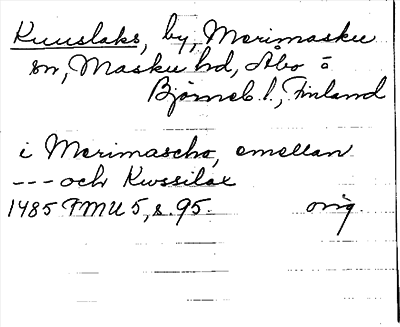 Kuuslaks, by, Merimasku
sn, Masku hd, Åbo o
Björneb. l., Finland
i Merimascho, emellan
--- och Kwssilax
1485 FMU 5, s. 95. orig.